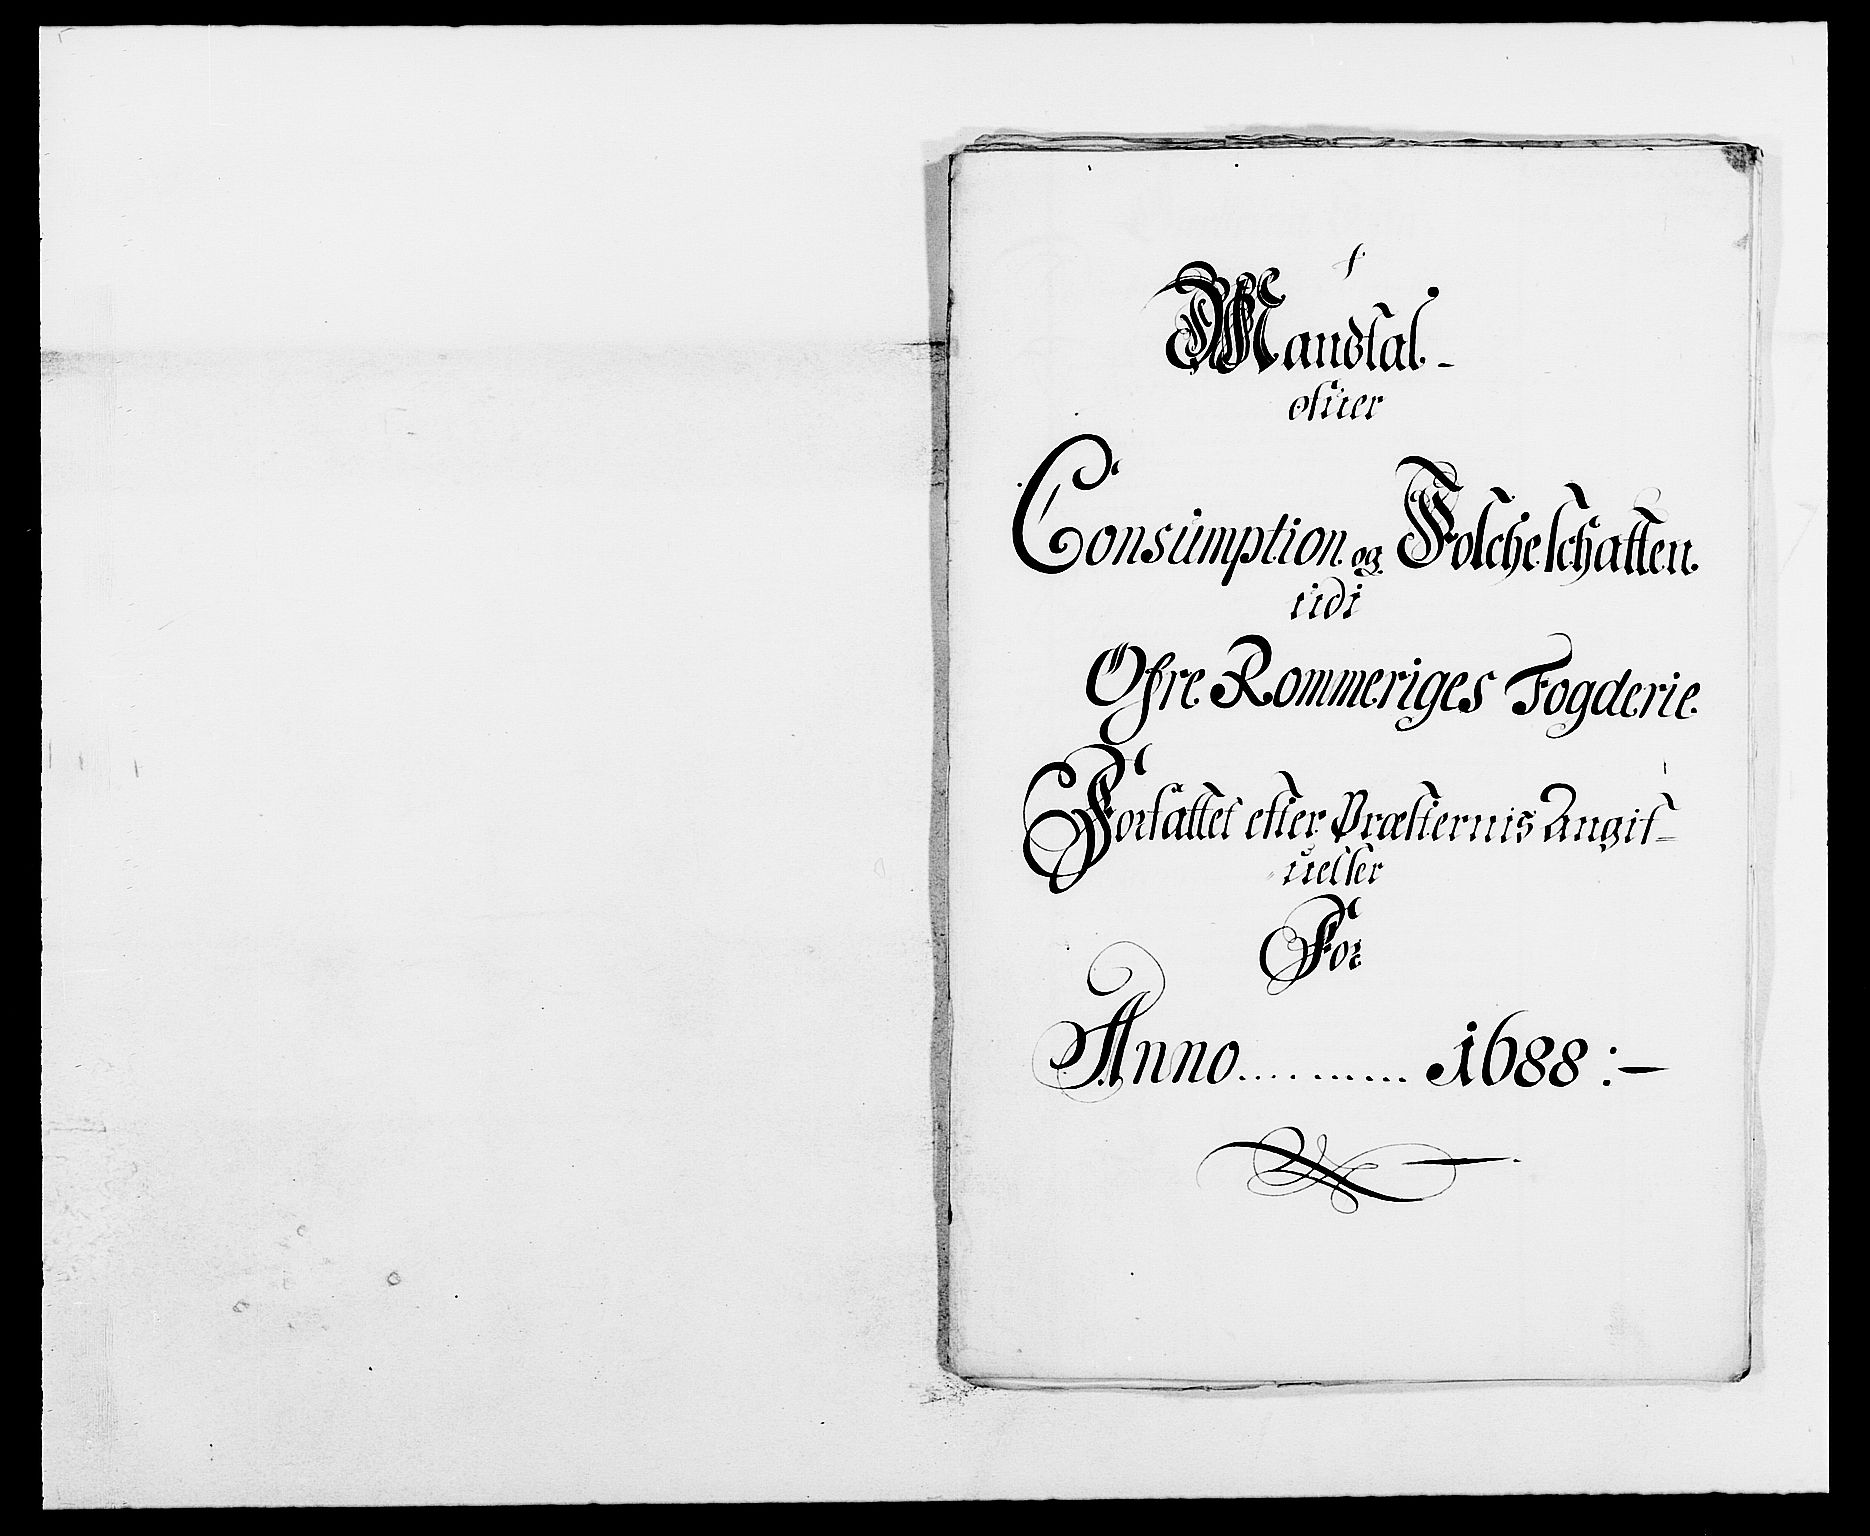 Mandtal
ofuer
Consumption og Folcheschatten
udi
Ofre Rommeriges Fogderie
Forfattet efter Præsternis Angif-
uelser
For
Anno .......... 1688 :-